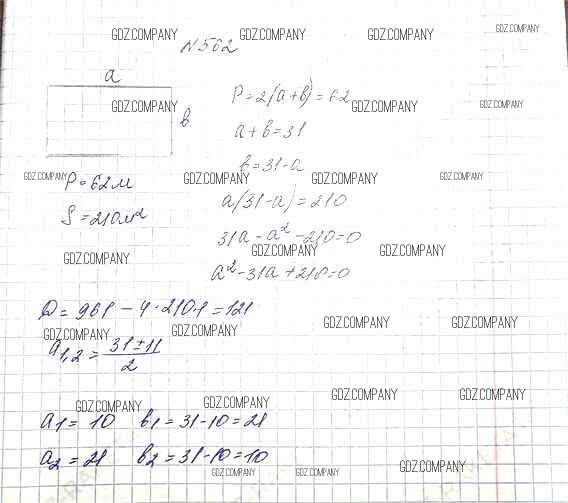 GDZ.COMPANY GDZ.COMPANY GDZ.COMPANY GDZ.COMPANY
N562
a
GDZ.COMPANY P=2(a+b)=62 GDZ.COMPANY GDZ.COMPANY
b
a+b=31
b=31-a
GDZ.COMPANY P=62м GDZ.COMPANY GDZ.COMPANY GDZ.COMPANY
a(31-a)=210
S=210м²
31a-a²-210=0
GDZ.COMPANY GDZ.COMPANY GDZ.COMPANY
a²-31a+210=0
D=961-4·210·1=121
GDZ.COMPANY GDZ.COMPANY GDZ.COMPANY GDZ.COMPANY
a1,2=31±11/2
GDZ.COMPANY GDZ.COMPANY GDZ.COMPANY GDZ.COMPANY
a1=10 b1=31-10=21
a2=21 b2=31-10=10
GDZ.COMPANY GDZ.COMPANY GDZ.COMPANY